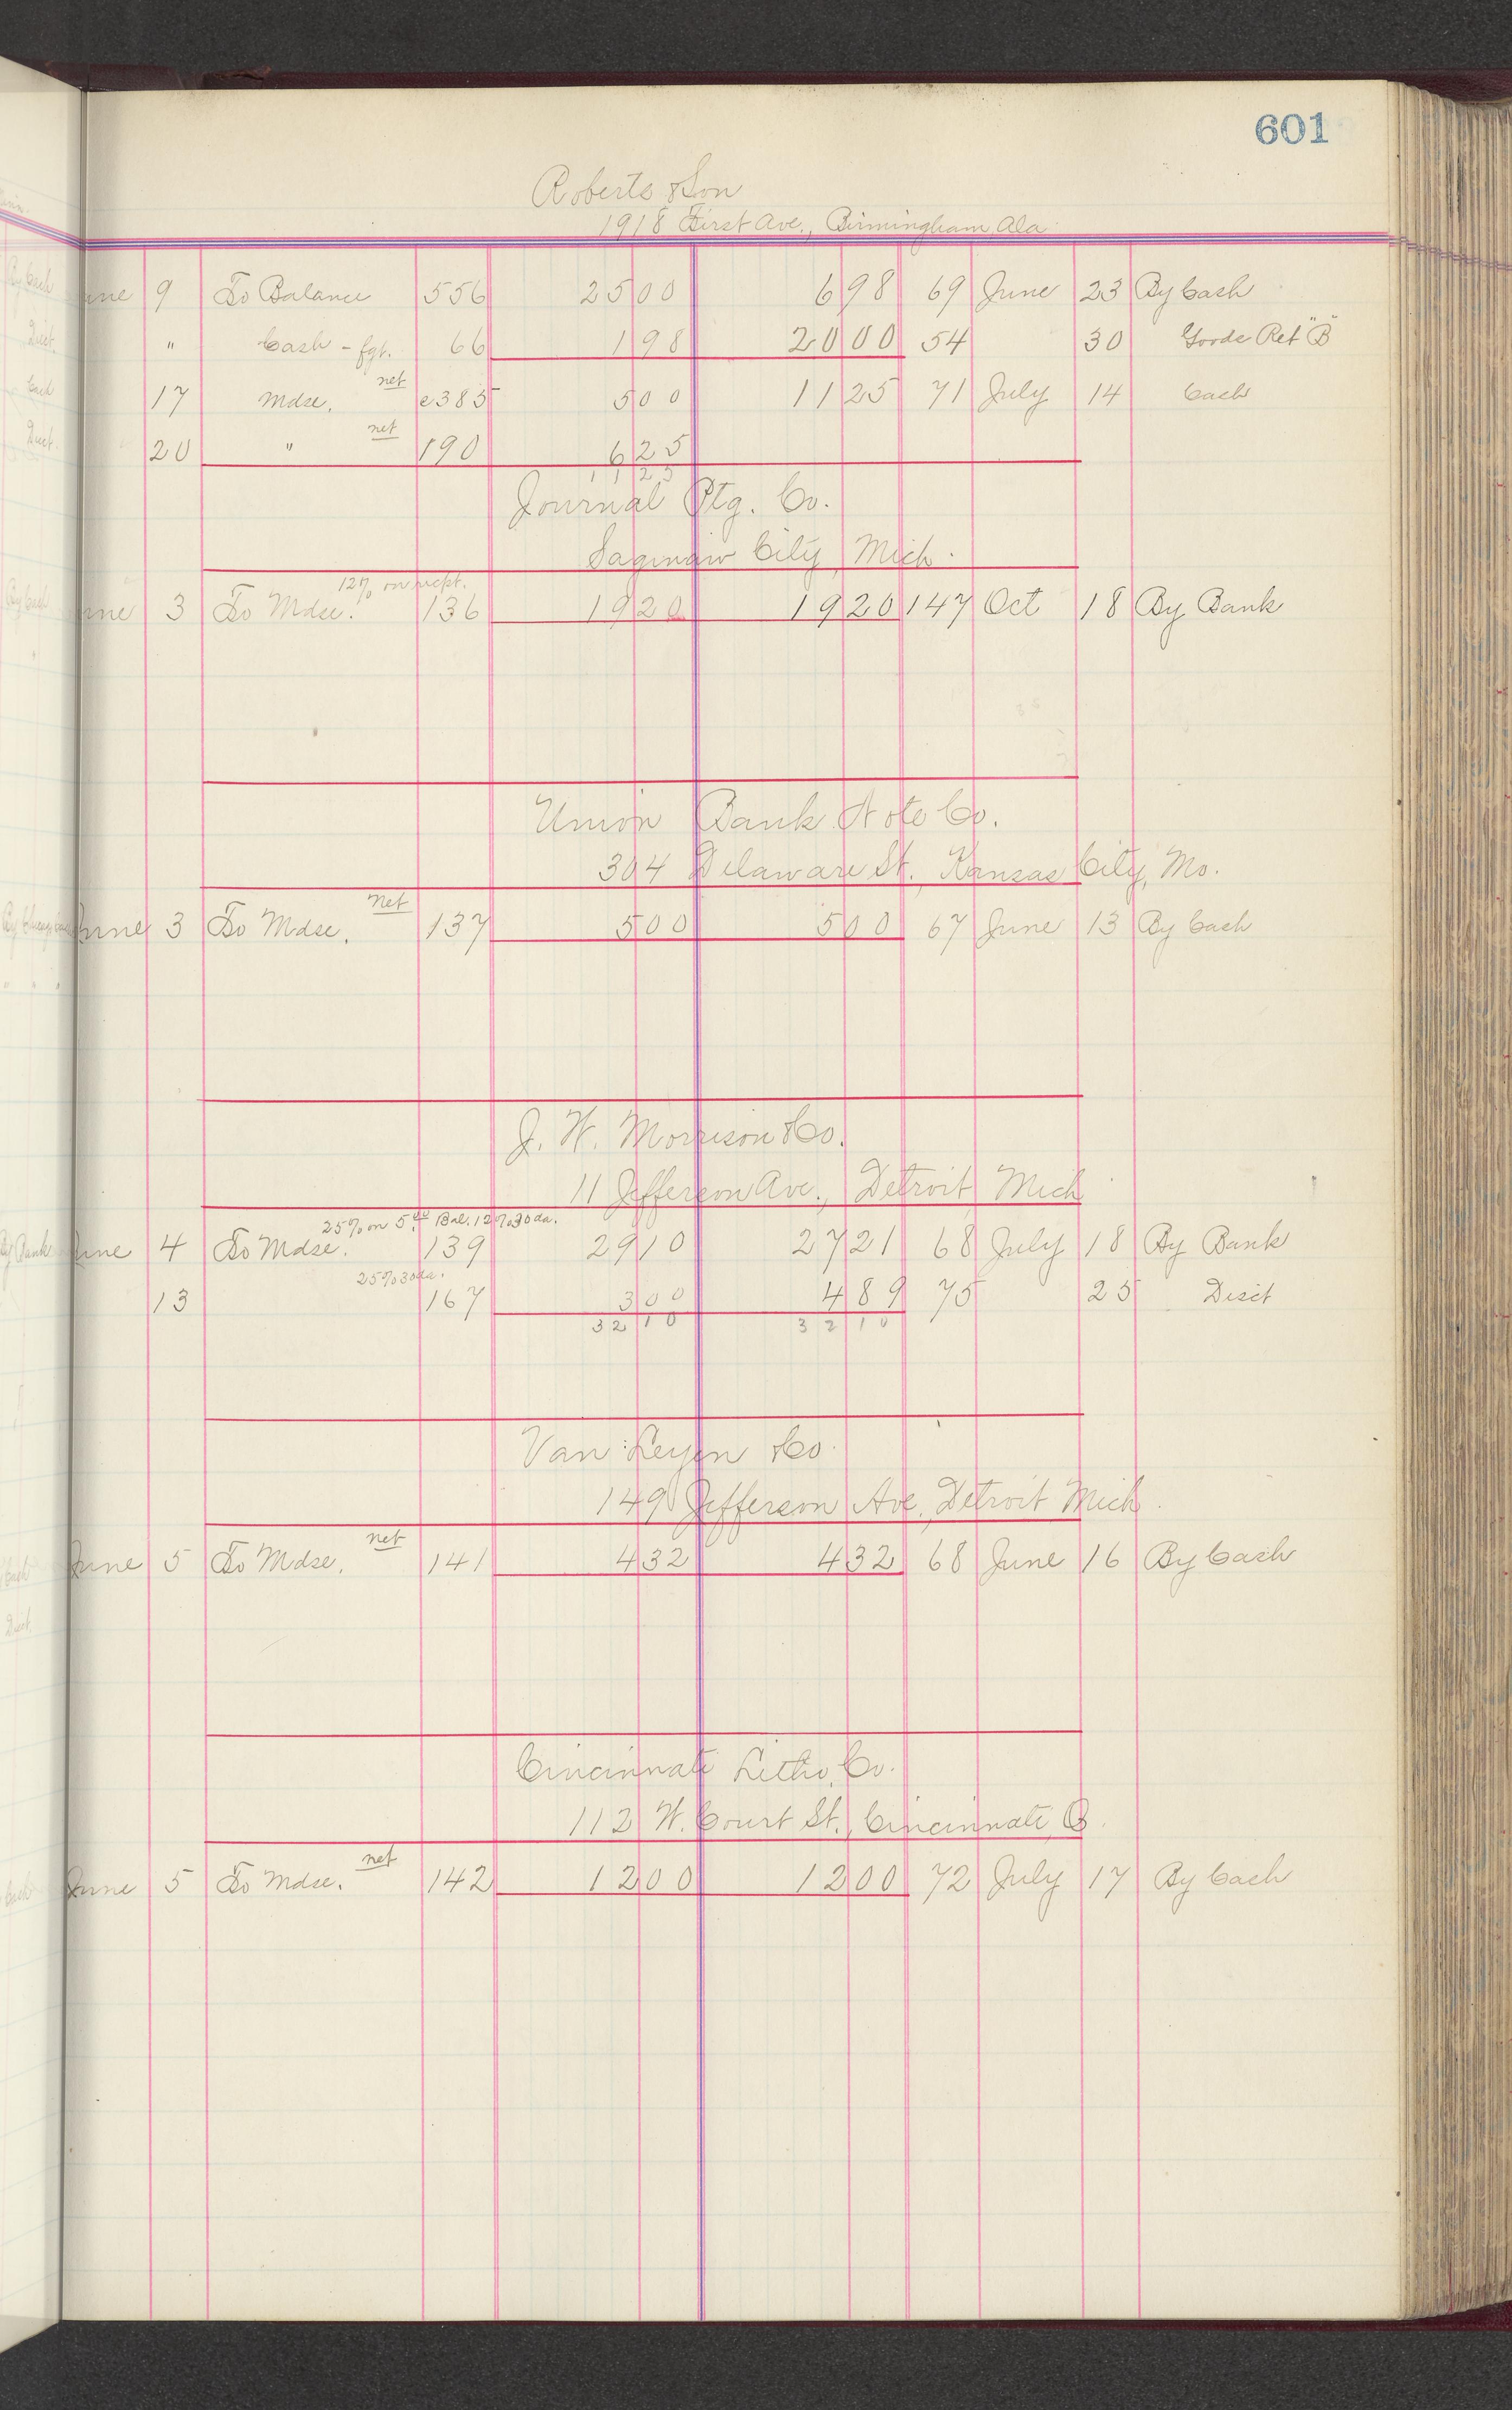 601
Roberts & Son
1918 First Ave., Birmingham, Ala
June 9 To Balance 556 25 00 6 98 69 June 23 By Cash
" Cash - fgt. 66 1 98 20 00 54 30 Goods Ret "B"
17 Mdse. net e385 5 00 11 25 71 July 14 Cash
20 " net 190 6 25
11 25
Journal Ptg. Co.
Saginaw City, Mich.
12% on rcpt.
June 3 To Mdse. 136 19 20 19 20 147 Oct 18 By Bank
Union Bank Note Co.
304 Delaware St., Kansas City, Mo.
June 3 To Mdse. net 137 5 00 5 00 67 June 13 By Cash
J. W. Morrison & Co.
11 Jefferson Ave., Detroit Mich
25% on 5.00 Bal. 12% 30 da.
June 4 To Mdse. 139 29 10 27 21 68 July 18 By Bank
25% 30 da.
13 167 3 00 4 89 75 25 Disct
32 10 32 10
Van Leyen & Co.
149 Jefferson Ave., Detroit Mich.
June 5 To Mdse. net 141 4 32 4 32 68 June 16 By Cash
Cincinnati Litho. Co.
112 W. Court St., Cincinnati, O.
June 5 To Mdse. net 142 12 00 12 00 72 July 17 By Cash